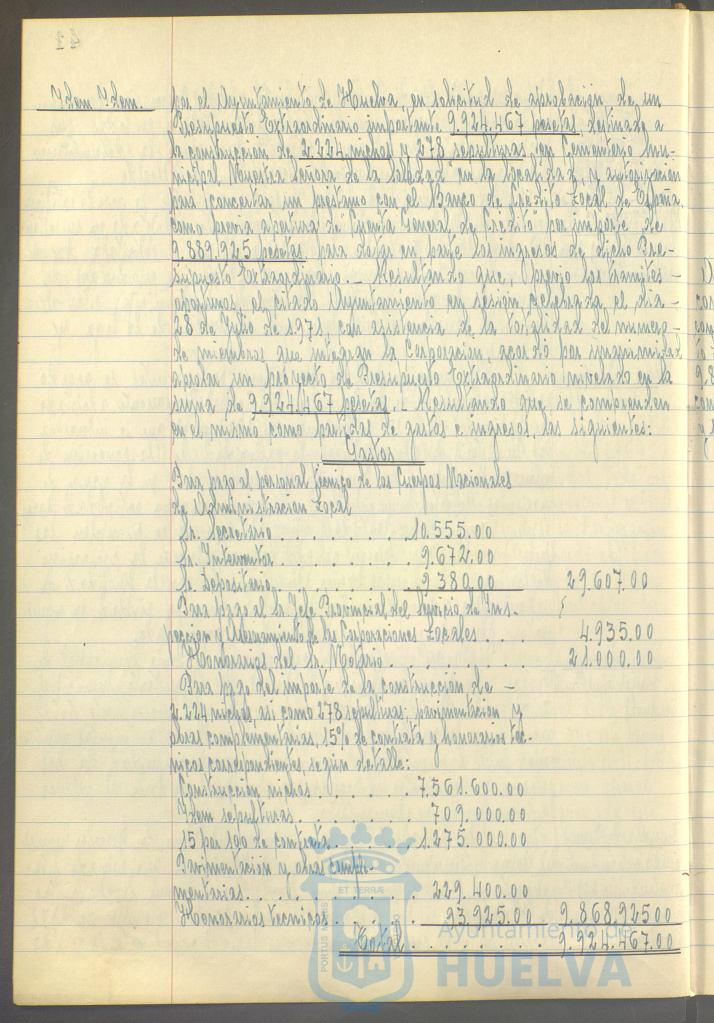 41
Idem Idem. por el Ayuntamiento de Huelva, en solicitud de aprobación de un
Presupuesto Extraordinario importante 9.924.467 pesetas destinado a
la construcción de 2.224 nichos y 278 sepulturas en Cementerio Mu-
nicipal Nuestra Señora de la Soledad en la localidad, y autorización
para concertar un préstamo con el Banco de Crédito Local de España,
como previa apertura de "Cuenta General de Crédito" por importe de
9.889.925 pesetas para dotar en parte los ingresos de dicho Pre-
supuesto Extraordinario. - Resultando que, previo los trámites
oportunos, el citado Ayuntamiento en sesión celebrada el día
28 de Julio de 1971 con asistencia de la totalidad del número
de miembros que integran la Corporación, acordó por unanimidad
aprobar un proyecto de Presupuesto Extraordinario nivelado en la
suma de 9.924.467 pesetas. - Resultando que se comprenden
en el mismo como partidas de gastos e ingresos, las siguientes:
Gastos
Para pago al personal técnico de los Cuerpos Nacionales
de Administración Local
Sr. Secretario . . . . . . . . 10.555.00
Sr. Interventor . . . . . . . . 9.672.00
Sr. Depositario . . . . . . . . 9.380,00 29.607.00
Para pago al Jefe Provincial del Servicio de Ins-
pección y Asesoramiento de las Corporaciones Locales . . . 4.935.00
Honorarios del Sr. Notario . . . . . . . . 21.000.00
Para pago del importe de la construcción de -
2.224 nichos, así como 278 sepulturas, pavimentación y
obras complementarias, 15% de contrata y honorarios téc-
nicos correspondientes, según detalle:
Construcción nichos . . . . . . 7.561.600.00
Idem sepulturas . . . . . . . 709.000.00
15 por 100 de contrata . . . . . 1.275.000.00
Pavimentación y obras comple-
mentarias . . . . . . . . . 229.400.00
Honorarios técnicos . . . . . 93.925.00 9.868.925.00
Total . . . . . . . . 9.924.467.00
ET TERRÆ
PORTUS MARIS
Ayuntamiento de
HUELVA